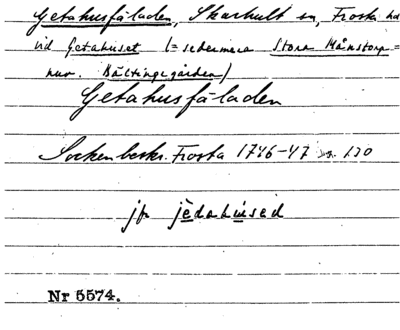 Getahusfäladen, Skarhult sn, Frosta hd
vid Getahuset (= sedermera Stora Månstorp =
nuv. Bältingegården)
Getahusfäladen
Sockenbeskr. Frosta 1746-47 s. 130
jfr jedahused
Nr 5574.